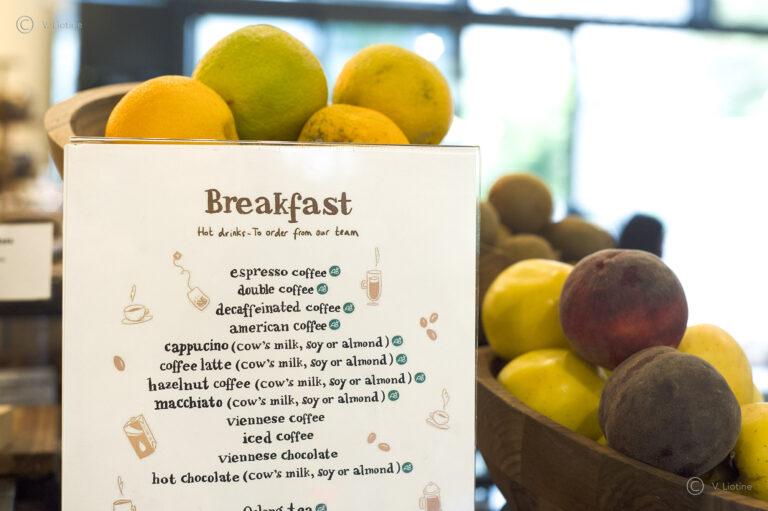 © V. Liotine
Breakfast
Hot drinks - To order from our team
espresso coffee AB
double coffee AB
decaffeinated coffee AB
american coffee AB
cappucino (cow's milk, soy or almond) AB
coffee latte (cow's milk, soy or almond) AB
hazelnut coffee (cow's milk, soy or almond) AB
macchiato (cow's milk, soy or almond) AB
viennese coffee
iced coffee
viennese chocolate
hot chocolate (cow's milk, soy or almond) AB
© V. Liotine